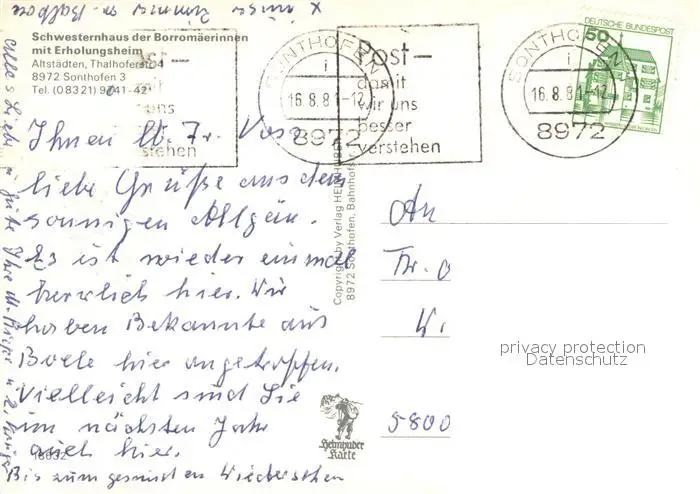 x unser Zimmer m. Balkon
Schwesternhaus der Borromäerinnen
mit Erholungsheim
Altstädten, Thalhoferstr. 4
8972 Sonthofen 3
Tel. (08321) 9041-42
Ihnen lb. Fr.
liebe Grüße aus dem
sonnigen Allgäu.
Es ist wieder einmal
herrlich hier. Wir
haben Bekannte aus
Boele hier angetroffen.
Vielleicht sind Sie
im nächsten Jahr
auch hier.
Bis zum gesunden Wiedersehen
Alles Liebe u. Gute Ihre
18032
Copyright by Verlag
8972 Sonthofen, Bahnhofs
Heimhuder
Karte
SONTHOFEN
i
16.8.81-12
8972
Post—
damit
wir uns
besser
verstehen
SONTHOFEN
i
16.8.81-12
8972
DEUTSCHE BUNDESPOST
50
An
Fr.
5800
privacy protection
Datenschutz